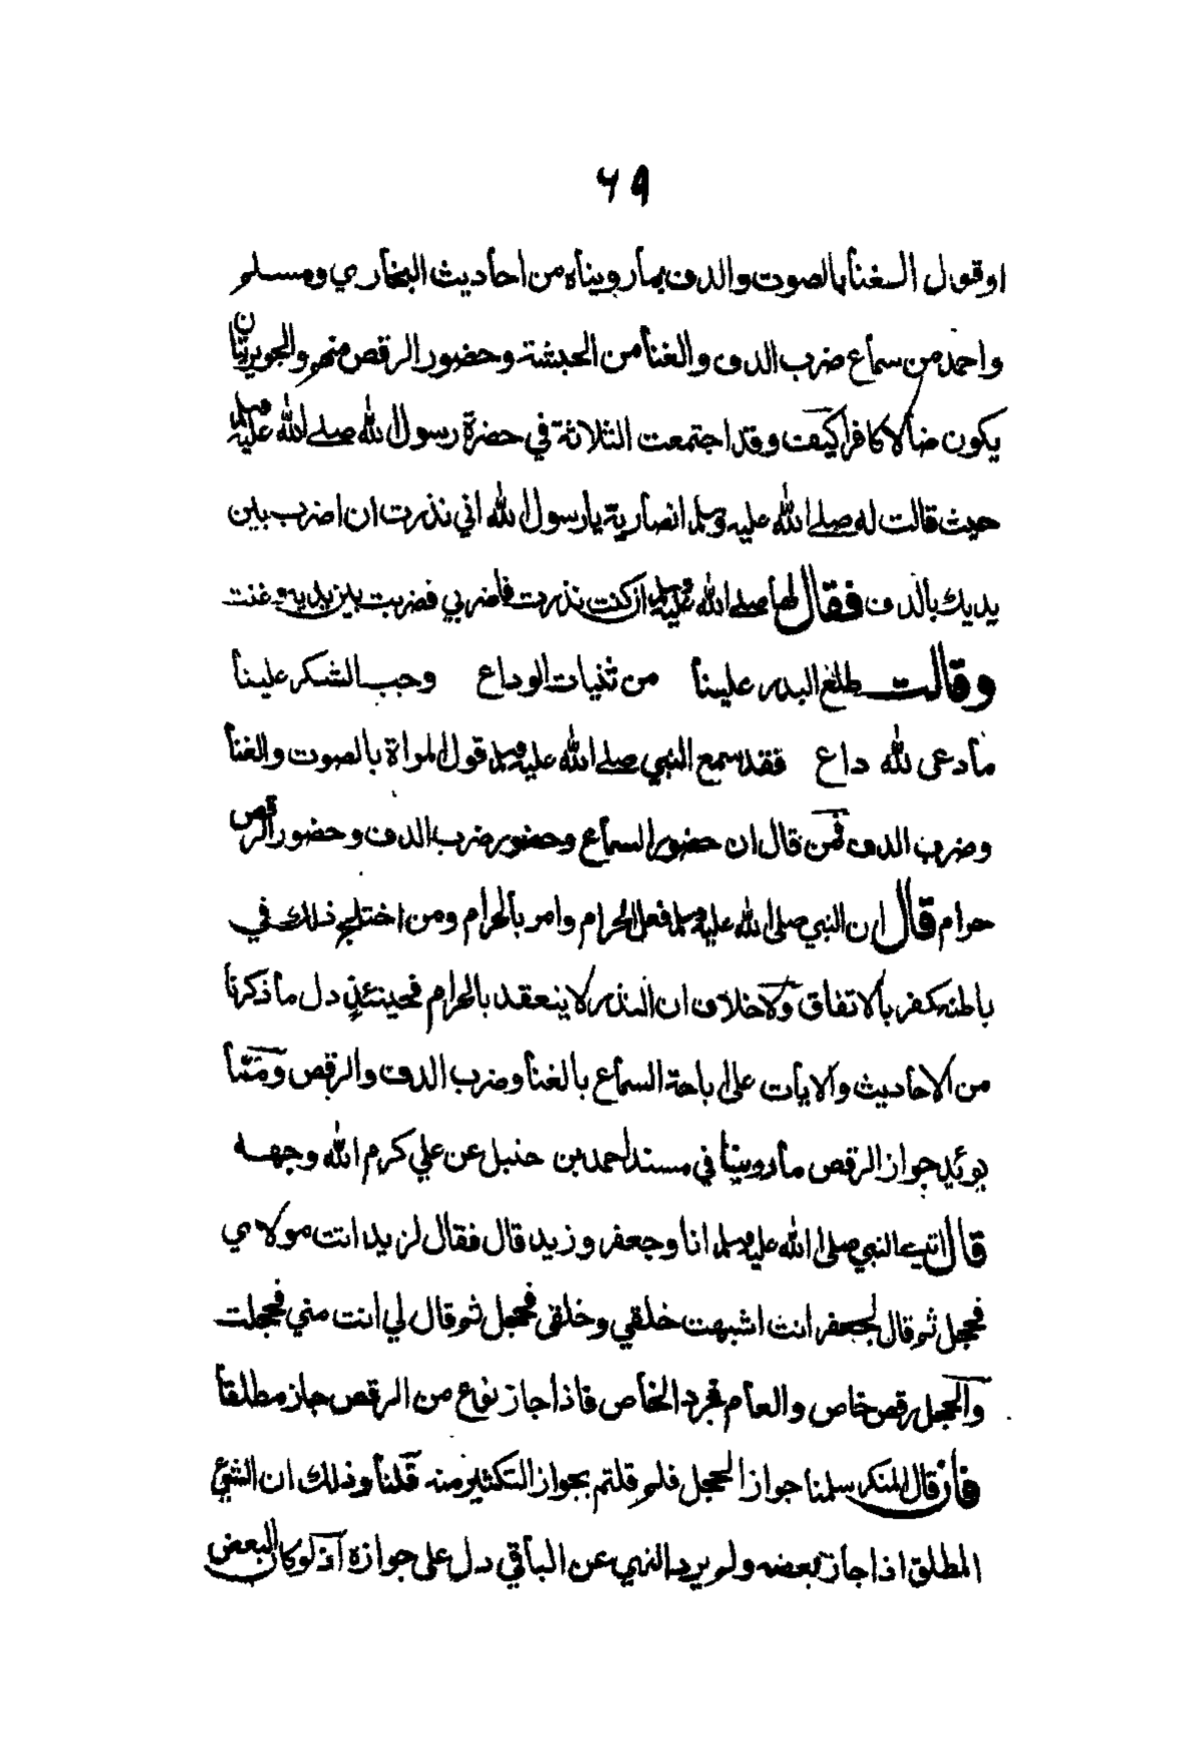 ٦٩
او قوال الغنأ بالصوت والدف بمأ رويناه من احأديث البخأري ومسلم
واحمد من سمأع ضرب الدف والغنأ من الحبشة وحضور الرقص منهم والجويريتأن
يكون ضألا كافرا كيف وقد اجتمعت الثلاثة في حضرة رسول الله صلى الله عليه وسلم
حيث قالت له صلى الله عليه وسلم انصأرية يأرسول الله اني نذرت ان اضرب بين
يديك بالدف فقال لهأ صلى الله عليه وسلم ان كنت نذرت فأضربي فضربت بين يديه وغنت
وقالت طلع البدر علينأ من ثنيات الوداع وجب الشكر علينأ
مأ دعى لله داع فقد سمع النبي صلى الله عليه وسلم قول المراة بالصوت والغنأ
وضرب الدف فمن قال ان حضور السمأع وحضور ضرب الدف وحضور الرقص
حرام قال ان النبي صلى الله عليه وسلم فعل الحرام وامر بألحرام ومن اختلج ذلك في
باطنه كفر بألاتفاق ولاخلاف ان النذر لا ينعقد بالحرام فحينئذ دل مأ ذكرنأ
من الاحأديث والايأت على اباحة السمأع بالغنأ وضرب الدف والرقص وممّأ
يوئيد جواز الرقص مأ روينأ في مسند احمد بن حنبل عن علي كرم الله وجهه
قال اتيت النبي صلى الله عليه وسلم انا وجعفر وزيد قال فقال لزيد انت مولاي
فحجل ثم قال لجعفر انت اشبهت خلقي وخلقى فحجل ثم قال لي انت مني فحجلت
والحجل رقص خاص والعأم فجرد الخأص فاذا جاز نوع من الرقص جاز مطلقأ
فأن قال المنكر سلمنا جواز الحجل فلم قلتم بجواز التكثير منه قلنأ وذلك ان الشيئ
المطلق اذا جأز بعضه ولم يرد النهي عن البأقي دل على جوازه اذ لوكان البعض